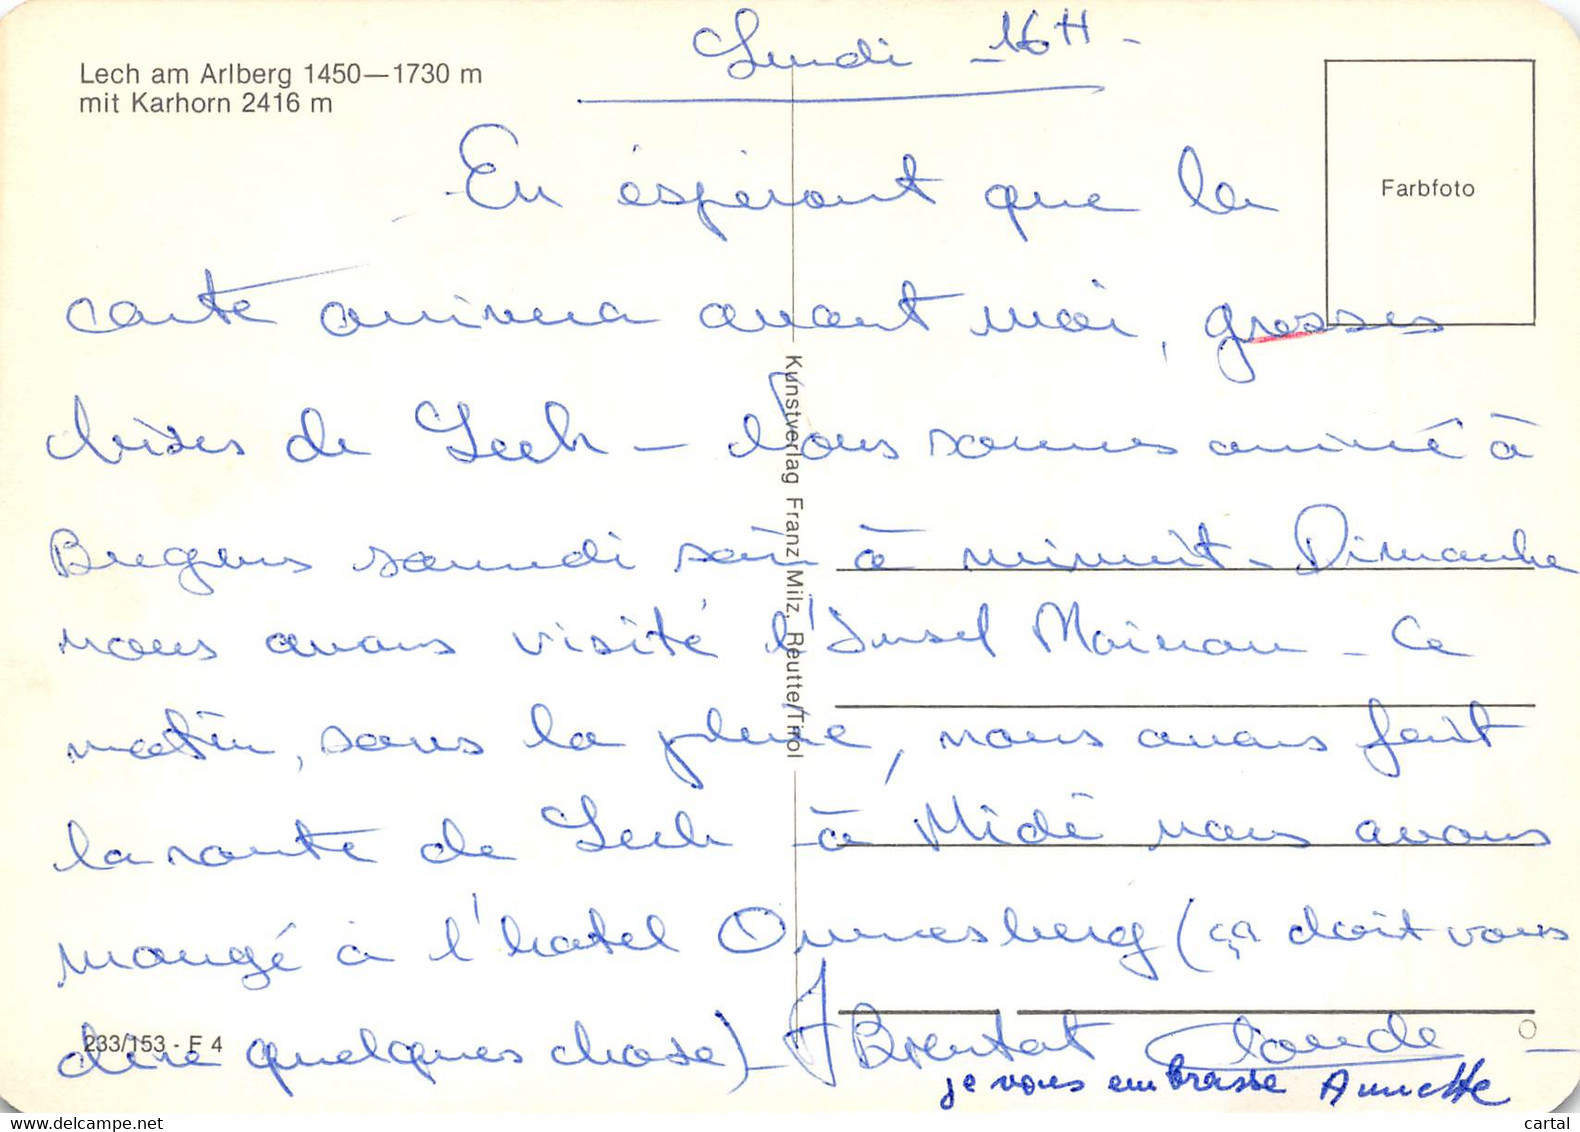 Lech am Arlberg 1450—1730 m
mit Karhorn 2416 m
Lundi - 16H -
Farbfoto
En éspérant que la
carte arrivera avant moi, grosses
bises de Lech - Nous sommes arrivé à
Bregens samedi soir à minuit - Dimanche
nous avons visité l'Insel Mainau - Ce
matin, sous la pluie, nous avons fait
la route de Lech - à Midi nous avons
mangé à l'hotel Omnesberg (ça doit vous
dire quelques chose) - A Bientot Claude -
je vous embrasse Annette
Kunstverlag Franz Milz, Reutte/Tirol
233/153 - F 4
cartal